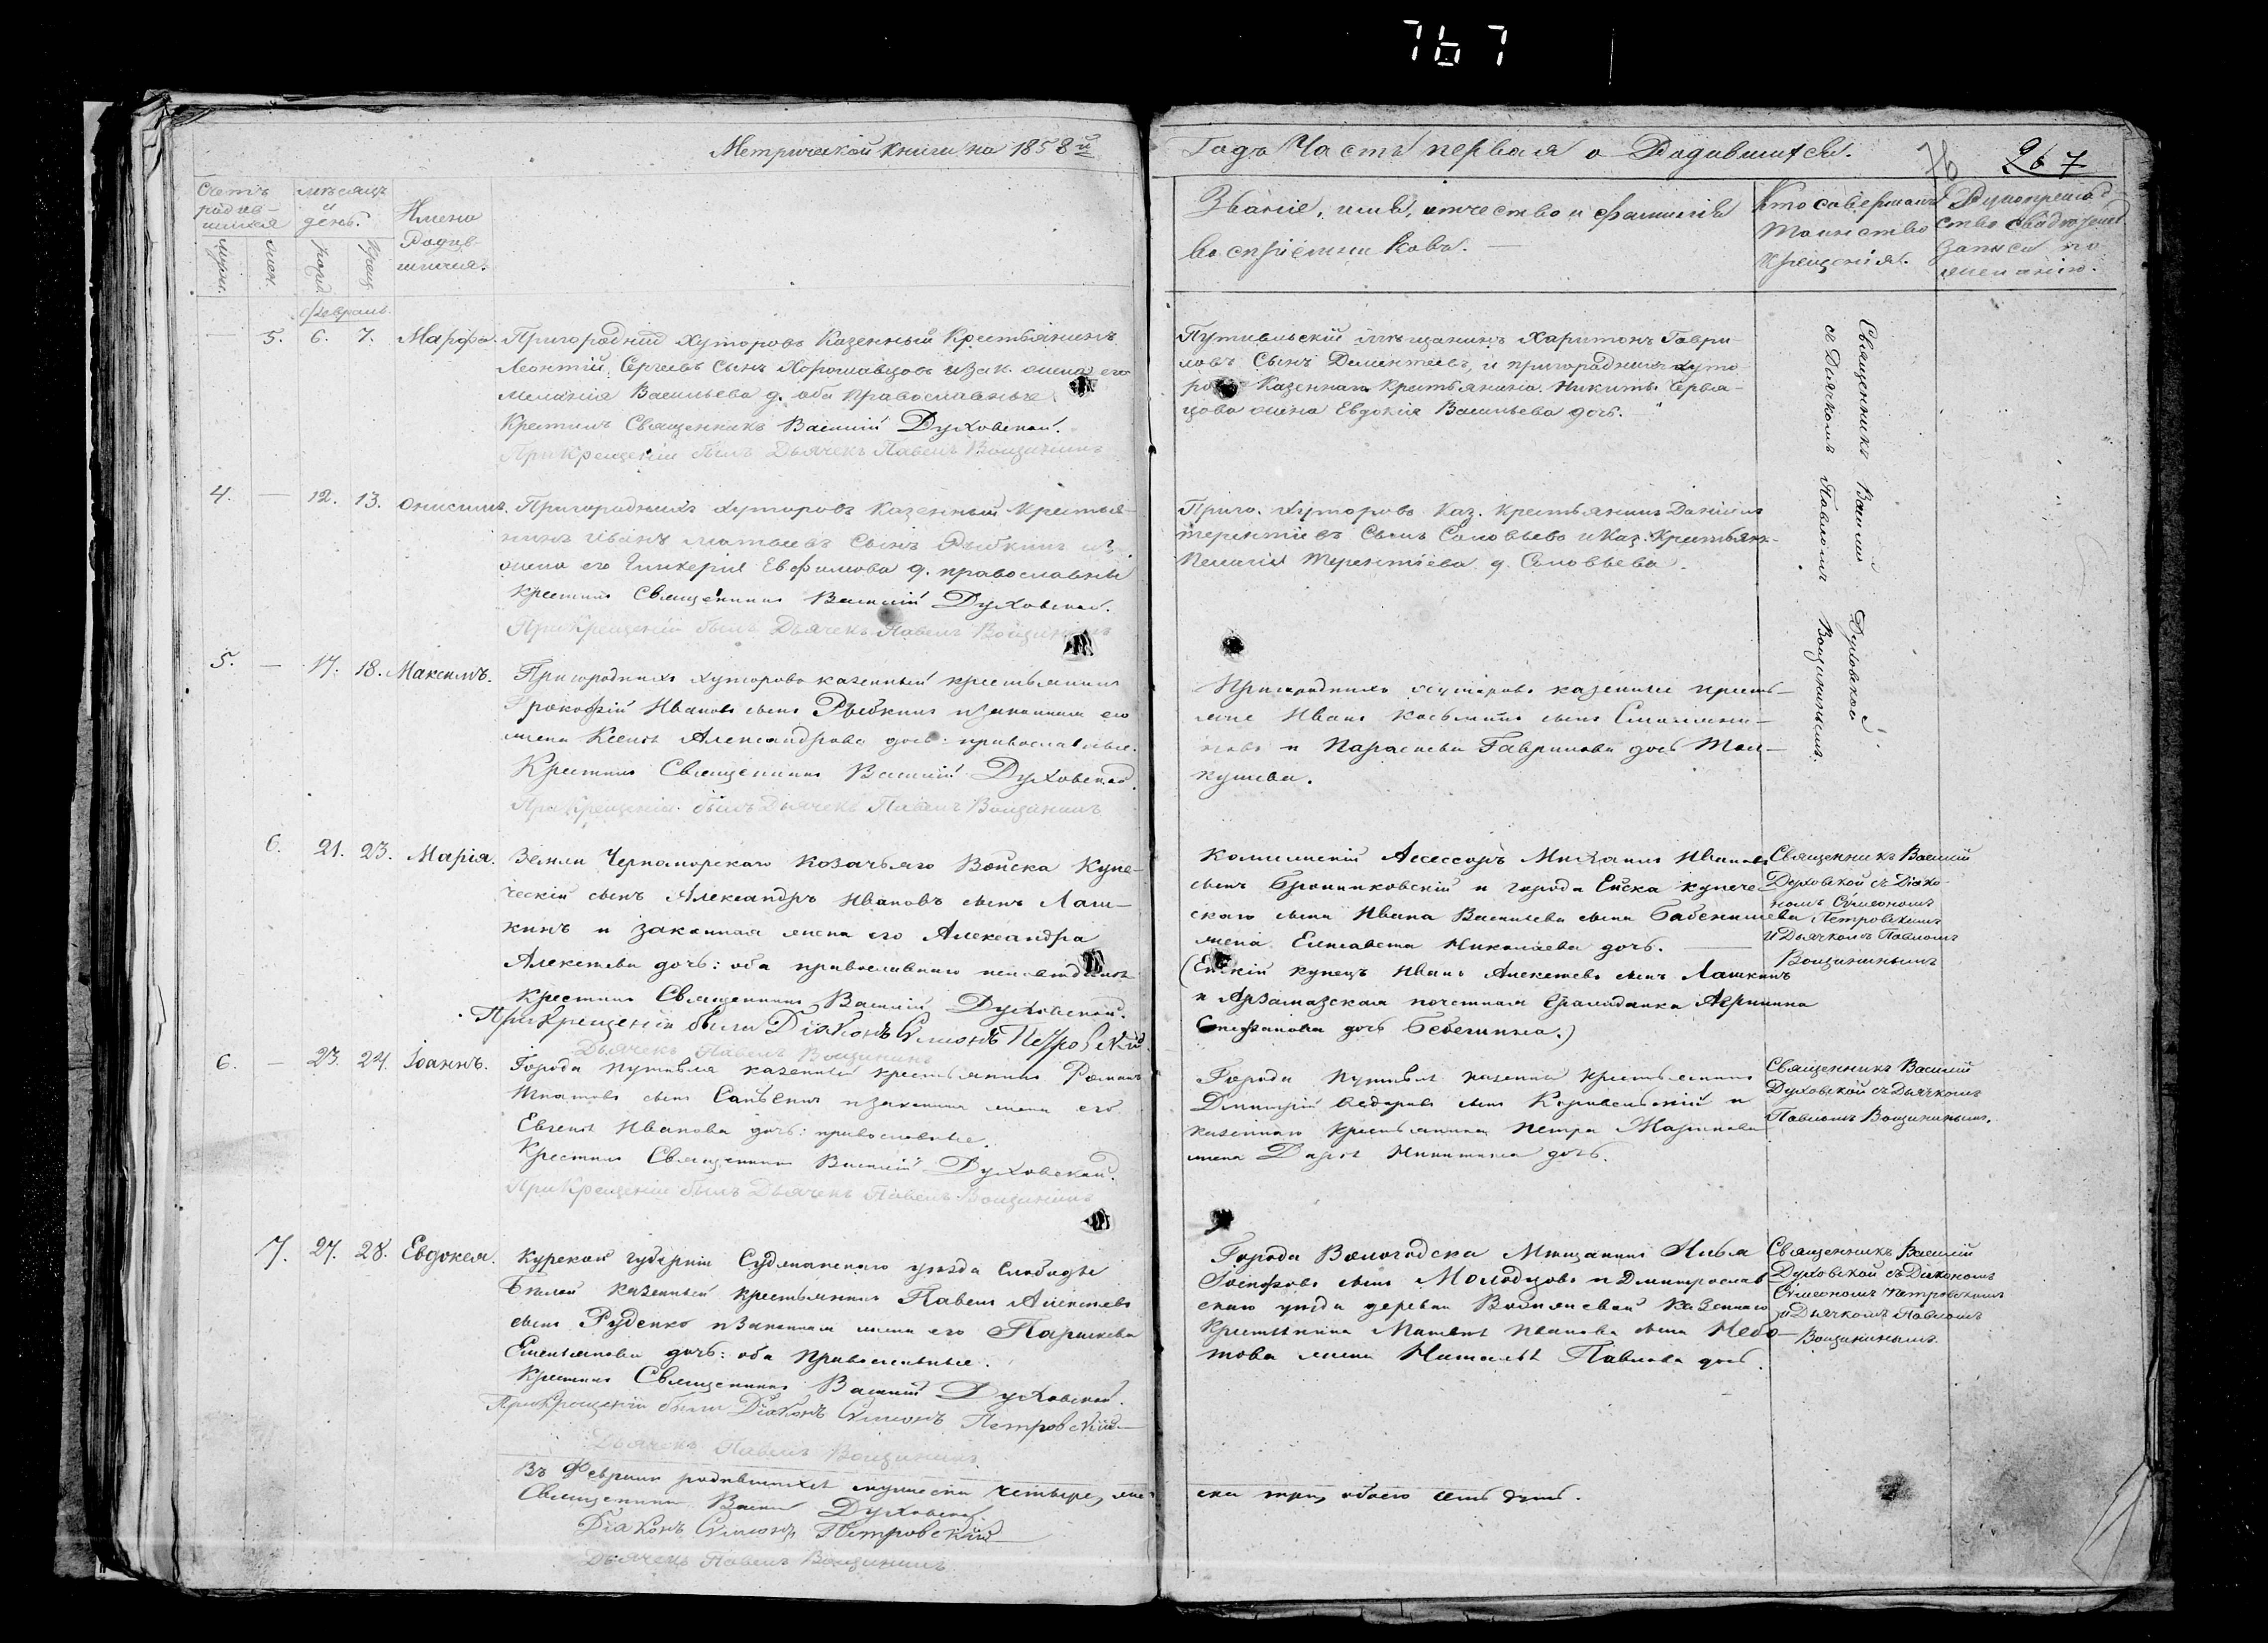 767
Метрической книги на 1858й
Годъ Часть первая о Родившихся.
76
267
Счетъ
родив-
шихся
мѣсяцъ
и
день.
Имена
Родив-
шихся.
муж.
жен.
рожд.
крещ.
Званіе, имя, отчество и фамилія
воспріемниковъ.
Кто совершалъ
Таинство
Крещенія.
Рукоприклад-
ство свидѣтелей
записи по
желанію.
Февраль.
— 5. 6. 7. Марѳа. Пригородний Хуторовъ Казенный Крестьянинъ
Леонтій Сергѣевъ Сынъ и зак. жена его
Меланія Васильева д. оба Православные
Крестилъ Священникъ Василій Духовской.
При Крещеніи былъ Дьячекъ Павелъ Вощининъ
Путивльскій мѣщанинъ Харитонъ Гаври-
ловъ Сынъ Дементьевъ, и пригороднихъ хуто
ро Казеннаго Крестьянина Никиты
цова жена Евдокія Васильева дочь.
Священникъ Василій Духовской
съ Дьячкомъ Павломъ Вощининымъ.
4. — 12. 13. Онисимъ. Пригороднихъ хуторовъ Казенный Крестья-
нинъ Иванъ Матвеевъ Сынъ Рыбкинъ и з.
жена его Гликерія Евфимова д. православны
Крестилъ Священникъ Василій Духовской.
При Крещеніи былъ Дьячекъ Павелъ Вощининъ
Приго. Хуторовъ Каз. Крестьянинъ Даніилъ
Терентіевъ Сынъ Соловьевъ и Каз. Крестьян-
Пелагія Терентіева д. Соловьева.
5. — 17. 18. Максимъ. Пригороднихъ хуторовъ казенный крестьянинъ
Прокофій Ивановъ сынъ Рыбкинъ и законная его
жена Ксенія Александрова дочь: православные.
Крестилъ Священникъ Василій Духовской.
При Крещеніи былъ Дьячекъ Павелъ Вощининъ
Пригороднихъ хуторовъ казенные кресть-
яне Иванъ Косьминъ сынъ
и Параскева Гаврилова дочь
6. 21. 23. Марія. Земли Черноморскаго Козачьяго Войска Купе-
ческій сынъ Александръ Ивановъ сынъ Лаш-
кинъ и законная жена его Александра
Алексѣева дочь: оба православнаго исповѣданія
Крестилъ Священникъ Василій Духовской.
При Крещеніи были Діаконъ Сѵмеонъ Петровскій
Дьячекъ Павелъ Вощининъ
Коллежскій Асессоръ Михаилъ Ивановъ
сынъ Бронниковскій и города Ейска купече-
скаго сына Ивана Васильева сына
жена Елисавета Николаева дочь. —
(Ейскій купецъ Иванъ Алексѣевъ сынъ Лашкинъ
и Арзамазская почетная Гражданка Агрипина
Стефанова дочь
Священникъ Василій
Духовской съ Діако-
номъ Сѵмеономъ
Петровскимъ
и Дьячкомъ Павломъ
Вощининымъ
6. — 23. 24. Іоаннъ. Города Путивля казенный крестьянинъ Романъ
Игнатовъ сынъ и законная жена его
Евгенія Иванова дочь: православные.
Крестилъ Священникъ Василій Духовской.
При Крещеніи былъ Дьячекъ Павелъ Вощининъ
Города Путивля казенный крестьянинъ
Димитрій Ѳедоровъ сынъ и
казеннаго крестьянина Петра Мартинова
жена Дарія Никитина дочь.
Священникъ Василій
Духовской съ Дьячкомъ
Павломъ Вощининымъ.
7. 27. 28. Евдокея. Курской губерніи Суджанскаго уѣзда Слободы
Бѣлой казенный крестьянинъ Павелъ Алексѣевъ
сынъ Руденко и Законная жена его Параскева
Емельянова дочь: оба Православные.
Крестилъ Священникъ Василій Духовской.
При Крещеніи были Діаконъ Сѵмеонъ Петровскій
Дьячекъ Павелъ Вощининъ
Города Мещанинъ Илья
сынъ Молодцовъ и Дмитрослав-
скаго уѣзда деревни Казеннаго
Крестьянина Матвея Иванова сына
жена Наталья Павлова дочь.
Священникъ Василій
Духовской съ Діакономъ
Сѵмеономъ Петровскимъ
и Дьячкомъ Павломъ
Вощининымъ
Въ Февралѣ родившихся мужеска четыре, жен
ска три, обоего семь душъ.
Священникъ Василій Духовской
Діаконъ Сѵмеонъ Петровскій
Дьячекъ Павелъ Вощининъ